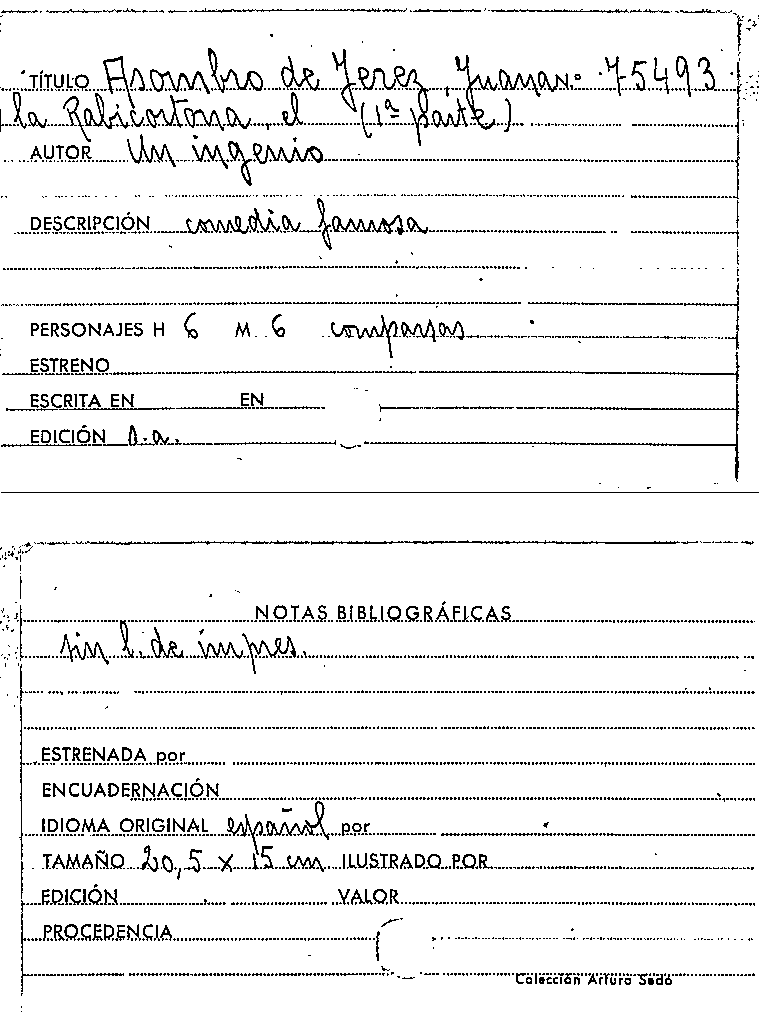 TÍTULO Asombro de Jerez, Juana N.º 75493
la Rabicortona, el (1ª parte)
AUTOR Un ingenio
DESCRIPCIÓN comedia famosa
PERSONAJES H 6 M. 6 comparsas
ESTRENO
ESCRITA EN EN
EDICIÓN s.a.
NOTAS BIBLIOGRÁFICAS
sin l. de impres.
ESTRENADA por
ENCUADERNACIÓN
IDIOMA ORIGINAL español por
TAMAÑO 20,5 x 15 cm ILUSTRADO POR
EDICIÓN VALOR
PROCEDENCIA
Colección Arturo Sedó